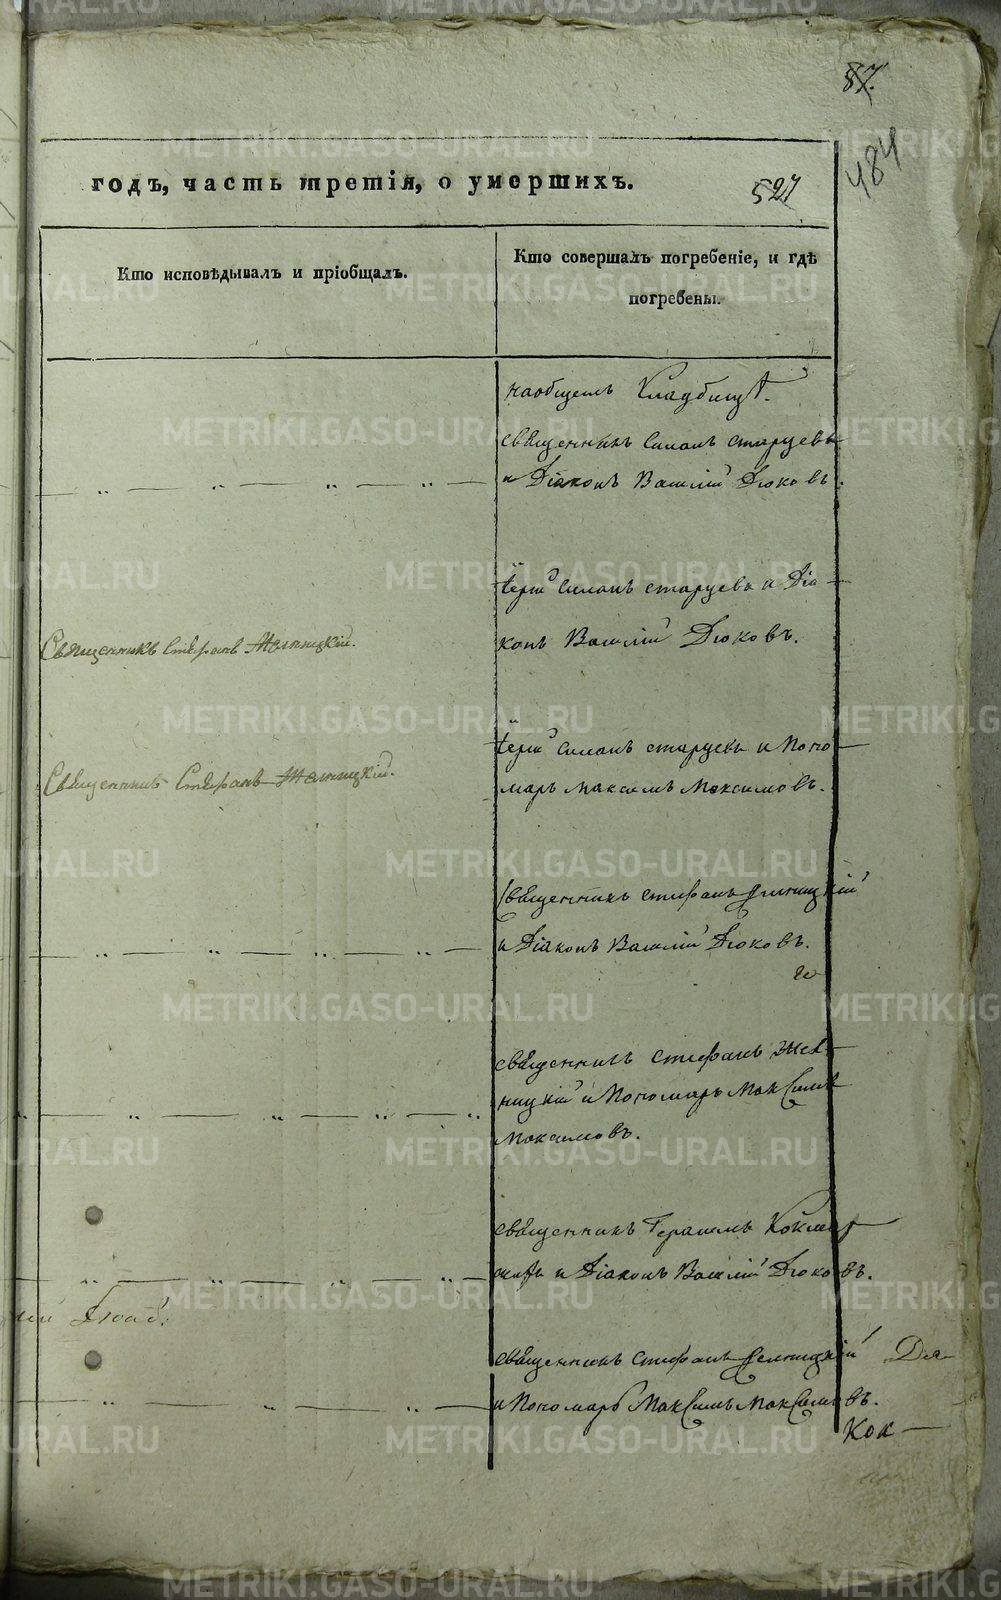 87.
484
годъ, часть третія, о умершихъ.
527
Кто исповѣдывалъ и пріобщалъ.
Кто совершалъ погребеніе, и гдѣ
погребены.
на общемъ Кладбищѣ.
священникъ Симонъ старцевъ
и Діаконъ Василій Дюковъ.
Іерей Симонъ старцевъ и Діа-
конъ Василій Дюковъ.
Священникъ Стефанъ
Іерей Симонъ старцевъ и Поно-
марь Максимъ Максимовъ.
Священникъ Стефанъ
священникъ стефанъ
и Діаконъ Василій Дюковъ.
священникъ стефанъ
ницкій и Пономарь Максимъ
Максимовъ.
священникъ Герасимъ
и Діаконъ Василій Дюковъ.
священникъ стефанъ
и Пономарь Максимъ Максимовъ.
Кок-
METRIKI.GASO-URAL.RU